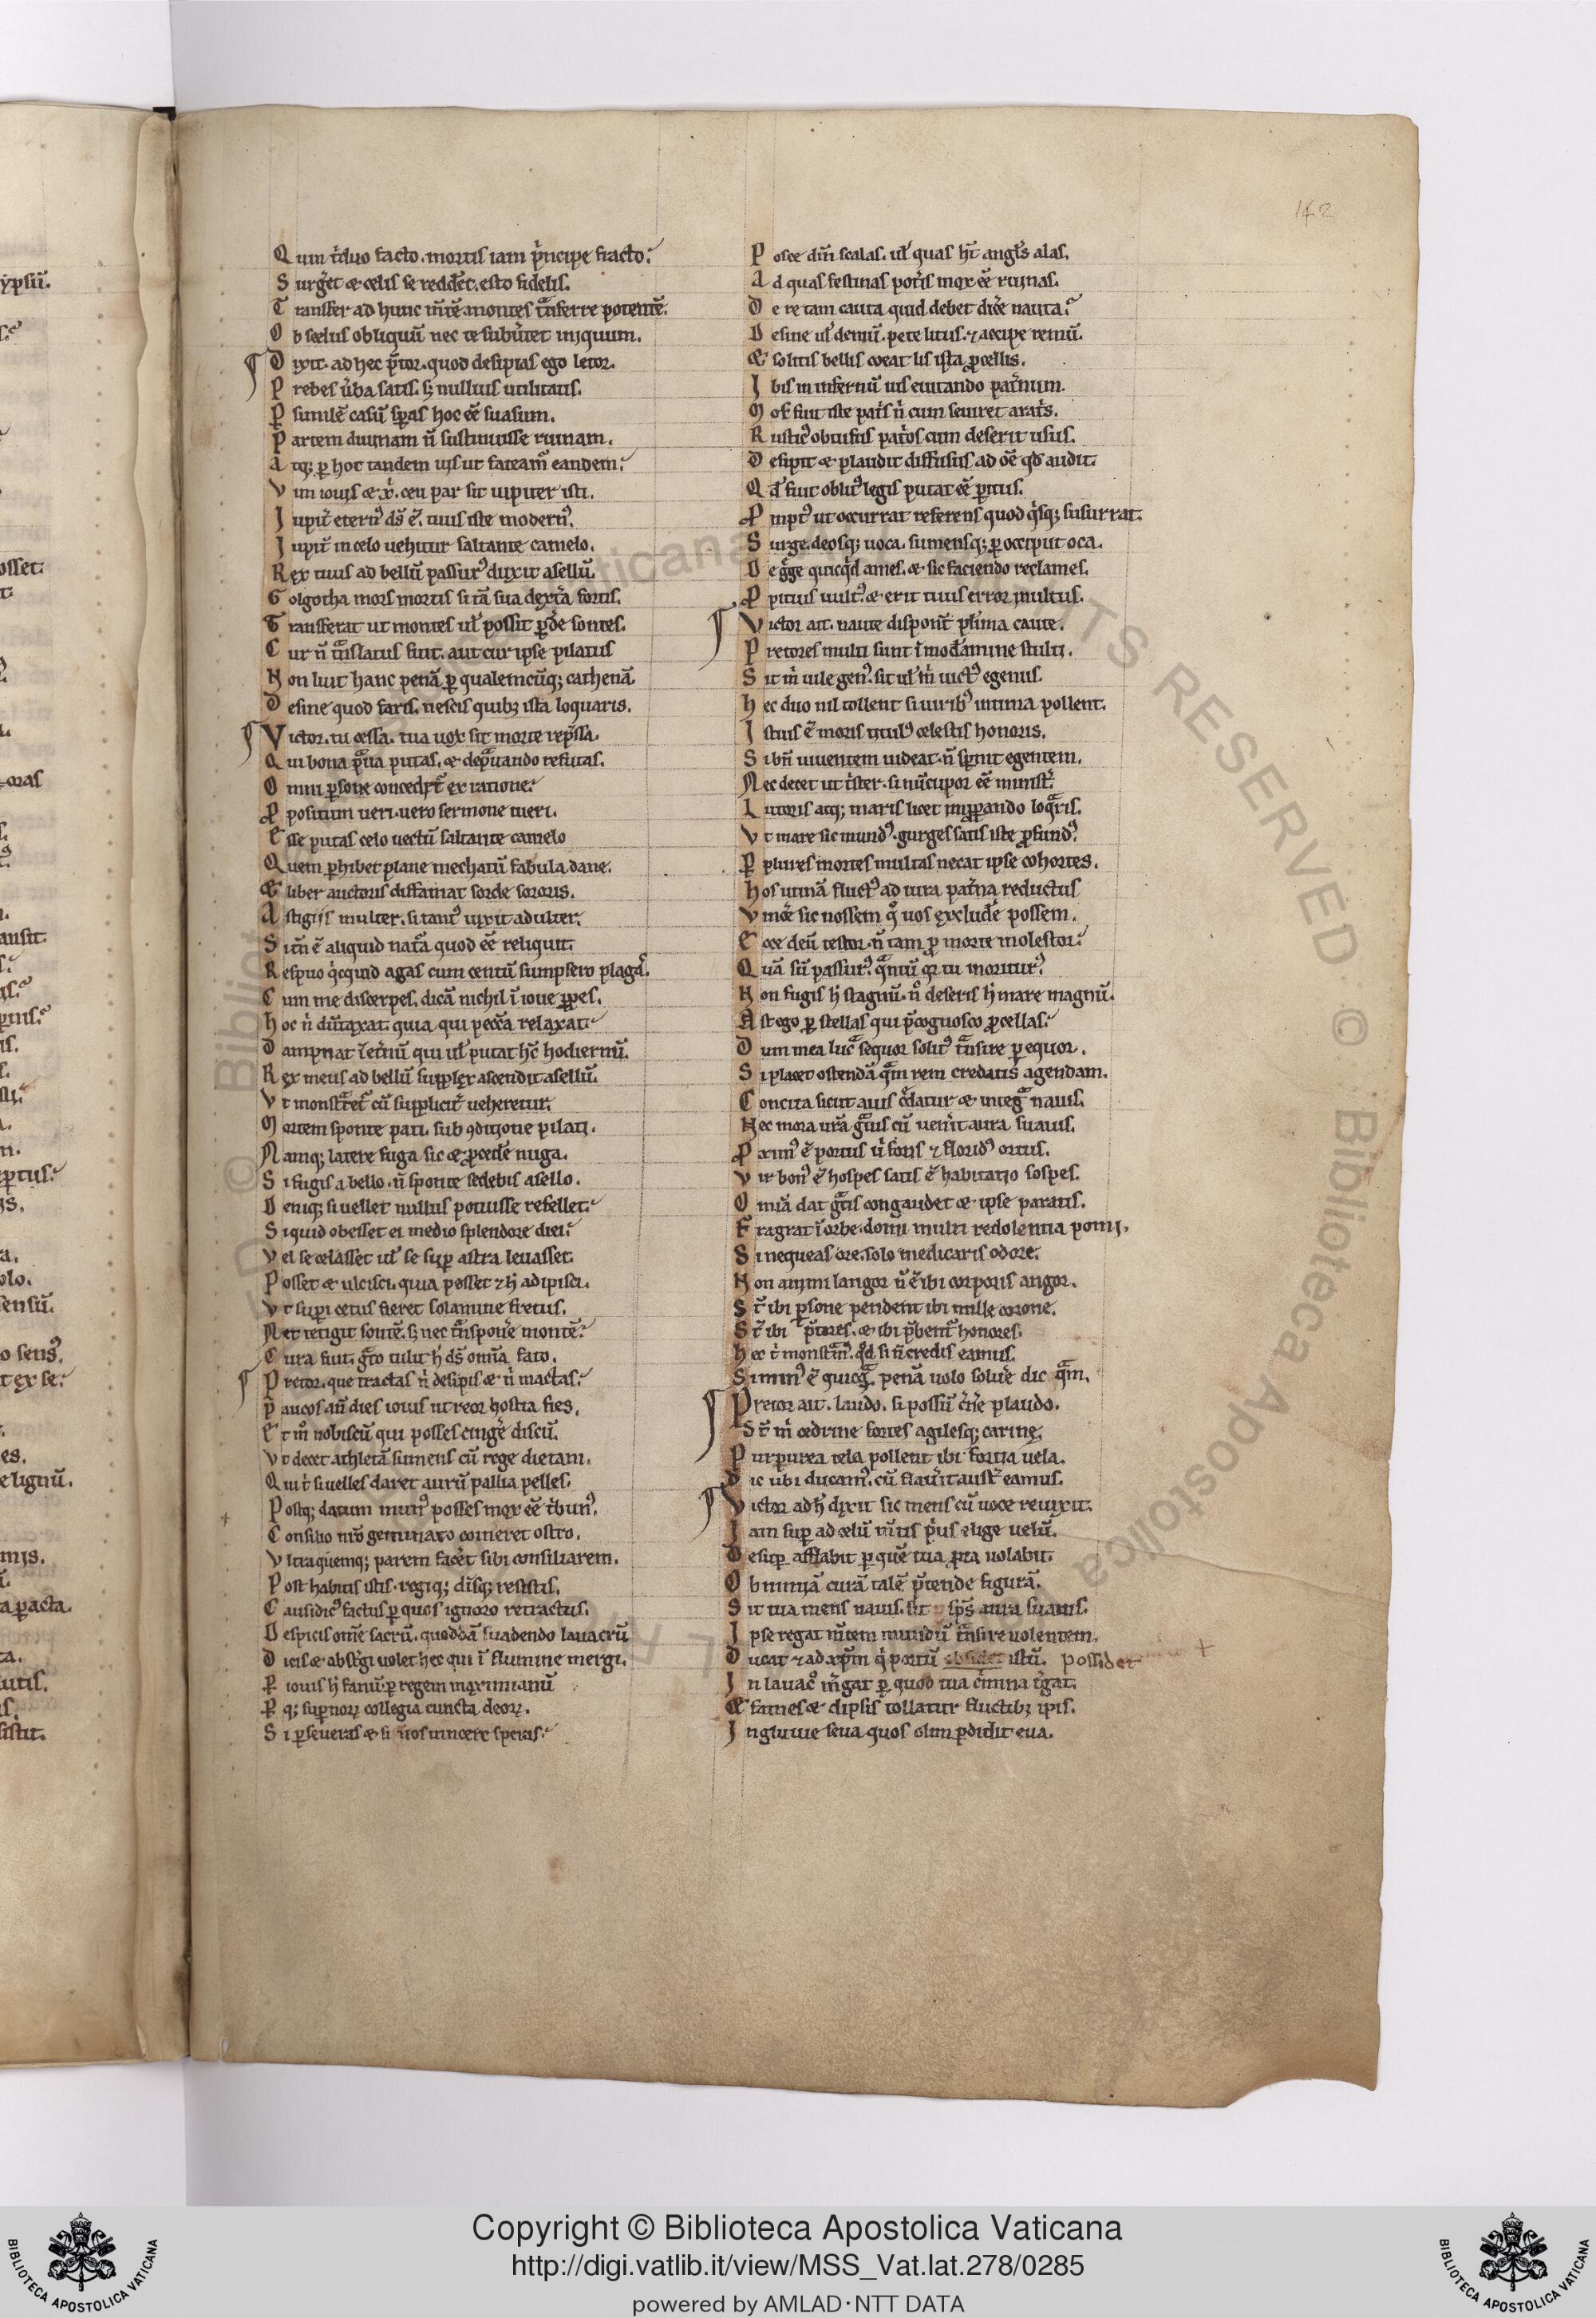 142
Qum t͛duo facto. mortis iam p͛ncipe fracto.
Surg͛et & celis se redd͛et. esto fidelis.
Transfer ad hunc m̄tē. montes t͛nsferre potentē.
Ob scelus obliquū nec te subu͛tet iniquum.
Dixit. ad hec p͛tor. quod desipias ego letor.
Prebes u͛ba satis. s; nullius utilitatis.
Ꝑ similē casū sp͛as hoc eē͛ suasum.
Partem diuinam n̄ sustinuisse ruinam.
Atq; ꝑ hoc tandem uis ut fateam͛ eandem.
Vim iouis & xp̄i. ceu par sit iupiter isti.
Iupit͛ etern᷒ ds̄ ē. tuus iste modern᷒.
Iupit͛ in celo uehitur saltante camelo.
Rex tuus ad bellū passur᷒ duxit asellū.
Golgotha mors mortis si tā sua dext͛a fortis.
Transferat ut montes ul̄ possit ꝑd͛e fontes.
Cur n̄ t͛nslatus fuit. aut cur ipse pilatus
Non luit hanc penā ꝑ qualemcūq; cathenā
Desine quod faris. nescis quib; ista loquaris.
Victor. tu cessa. tua uox sit morte rep͛ssa.
Qui bona p͛ua putas. & dep͛uando refutas.
Omni ꝑsone concedit͛ ex ratione.
Ꝓpositum ueri. uero sermone tueri.
Esse putas celo uectū saltante camelo
Quem ꝑhibet plane mechatū fabula dane.
& liber auctoris diffamat sorde sororis.
Astigiis mulier. si tant᷒ uixit adulter.
Sit n̄ ē aliquid nat͛a quod eē͛ reliquit.
Respuo q͛cquid agas cum centū sumpsero plagas.
Cum me discerpes. dicā nichil ī ioue ꝓpes.
Hoc n̄ dūtaxat. quia qui pecc͛a relaxat.
Dampnat et͛nū qui ul̄ putat hc̄ hodiernū.
Rex meus ad bellū supplex ascendit asellū.
Vt monst͛ret͛ cū supplicit͛ ueheretur.
Mortem sponte pati. sub ꝯditione pilati.
Namq; latere fuga sic & ꝓced͛e nuga.
Si fugis a bello. n̄ sponte sedebis asello.
Deniq; si uellet nullus potuisse refellet.
Siquid obesset ei medio splendore diei.
Vel se celasset ul̄ se suꝑ astra leuasset.
Posset & ulcisci. quia posset ⁊ h̄ adipisci.
Vt suꝑi cetus fieret solamine fretus.
Nec tetigit fontē. s; nec t͛nspon͛e montē.
Cura fuit. g͛to tulit h̄ ds̄ omīa fato.
Pretor. que tractas n̄ desipis & n̄ mactas.
Ꝑ aucos an̄ dies iouis ut reor hostia fies.
Et m̊ nobiscū qui posses cing͛e discū.
Vt decet athletā sumens cū rege dietam.
Qui t͛ si uelles daret aurū pallia pelles.
Postq; datum mun᷒ posses mox eē͛ t͛bun᷒.
Consilio nr̄o geminato comeret ostro.
Vltra quemq; parem fac͛et sibi consiliarem.
Post habitis istis. regiq; disq; resistis.
Causidic᷒ factus ꝑ quos ignoro retractus.
Despicis omē sacrū. quoddā suadendo lauacrū
Dicis & abst͛gi uolet hec qui ī flumine mergi.
Ꝑ iouis h̄ fanū. ꝑ regem maximianū
Ꝑ q; suꝑnorꝝ collegia cuncta deorꝝ.
Si ꝑseueras & si nos uincere speras.
Posce dm̄ scalas. ul̄ quas h̄t angl̄s alas.
Ad quas festinas pot͛is mox eē͛ ruinas.
De re tam cauta quid debet dic͛e nauta.
Desine ul̄ demū. pete litus. ⁊ accipe remū.
& solitis bellis coeat lis ista ꝓcellis.
Ibis in infernū uis euitando pat͛num.
Mos fuit iste pat͛s n̄ cum seuiret arat͛s.
Rustic᷒ obtusus pat͛os cum deserit usus.
Desipit & plaudit diffusus ad oē qd̄ audit.
Qd̄ fuit oblit᷒ legis putat eē͛ ꝑitus.
Ꝓmpt᷒ ut occurrat referens quod q͛sq; susurrat.
Surge. deosq; uoca. sumensq; ꝑ occiput oca.
Deg͛ge quicq͛d ames. & sic faciendo reclames.
Ꝓpitius uult᷒. & erit tuus error inultus.
Victor ait. naute disponit͛ pl͛ima caute.
Pretores multi sunt ī mod͛amine stulti.
Sit m̄ uile gen᷒. sit ul̄ m̄ uict᷒ egenus.
Hec duo nil tollent si uirib᷒ intima pollent.
Istius ē moris titul᷒ celestis honoris.
Sibn̄ uiuentem uideat. n̄ sp͛nit egentem.
Nec decet ut t͛ster. si nūcupor eē͛ minist͛.
Litoris atq; maris licet imꝓp͛ando loq͛ris.
Vt mare sic mund᷒. gurges satis iste ꝓfund᷒.
Ꝑ plures mortes multas necat ipse cohortes.
Hos utinā fluct᷒ ad iura pat͛na reductus
Vinc͛e sic nossem q̊ uos exclud͛e possem.
Ecce deū testor. n̄ tam ꝓ morte molestor.
Quā sū passur᷒. q͛ntū qr̄ tu moritur᷒.
Non fugis h̄ stagnū. n̊ deseris h̄ mare magnū.
Ast ego ꝑ stellas qui p͛cognosco ꝓcellas.
Dum mea luc͛a sequor solit᷒ t͛nsire ꝑ equor.
Si placet ostendā q͛m rem credatis agendam.
Concita sicut auis c͛datur & integ͛ nauis.
Nec mora ur͛a g͛uis cū uen͛it aura suauis.
Ꝓxim᷒ ē portus u͛ fons ⁊ florid᷒ ortus.
Vir bon᷒ ē hospes satis ē habitatio sospes.
Omīa dat g͛tis congaudet & ipse paratis.
Fragrat ī orbe. domi multi redolentia pomi.
Si nequeas ore. solo medicaris odore.
Non animi langor n̄ ē ibi corporis angor.
St̄ ibi ꝑsone pendent ibi mille corone.
St̄ ibi p͛tores. & ibi p͛bent͛ honores.
Hec t͛ monst͛m᷒. qd̄ si n̄ credis eamus.
Si min᷒ ē quicq͛. penā uolo solu͛e dic q͛m.
Pretor ait. laudo. si possū c͛n͛e plaudo.
St̄ m̄ cedrine fortes agilesq; carine.
Purpurea tela pollent ibi fortia uela.
Dic ubi ducam᷒. cū flau͛it aust͛ eamus.
Victor ad h̄ dixit sic mens cū uoce reuixit.
Iam suꝑ ad celū m̄tis p͛us elige uelū.
Desuꝑ afflabit ꝑ quē tua ꝓra uolabit.
Ob nimiā curā talē p͛tende figurā.
Sit tua mens nauis. sit sp̄s aura suauis.
Ipse regat m̄tem mundū t͛nsire uolentem.
Ducat ⁊ ad xp̄m q͛ portū istū. possidet
In lauac̊ m͛gat ꝑ quod tua c͛mina t͛gat.
& fames & dipsis tollatur fluctib; ipis.
Ingluuie seua quos olim ꝑdidit eua.
Copyright © Biblioteca Apostolica Vaticana
http://digi.vatlib.it/view/MSS_Vat.lat.278/0285
powered by AMLAD·NTT DATA
BIBLIOTECA APOSTOLICA VATICANA
BIBLIOTECA APOSTOLICA VATICANA